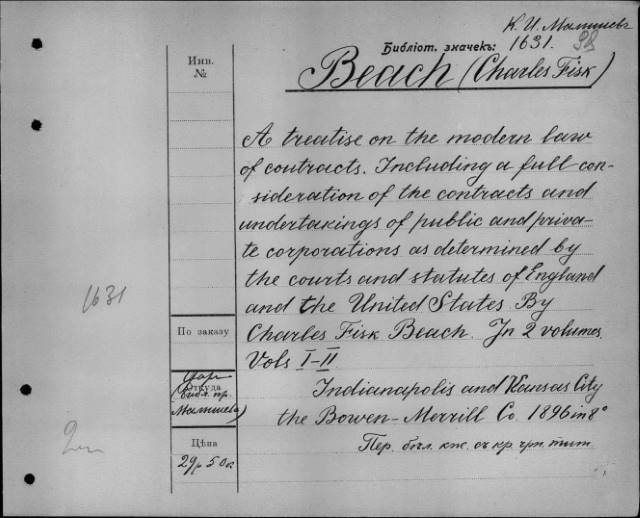 К. И. Малышевъ
Библіот. значекъ: 1631. 98
Инв.
№
Beach (Charles Fisk)
A treatise on the modern law
of contracts. Including a full con-
sideration of the contracts and
undertakings of public and priva-
te corporations as determined by
the courts and statutes of England
and the United States. By
Charles Fisk Beach. In 2 volumes.
Vols I-II
1631
По заказу
Откуда
Малышева)
Indianapolis and Kansas City
the Bowen-Merrill Co 1896 in 8°
Цѣна
29р 50к
Пер. бѣл. кж. съ кр. чрн. тит.